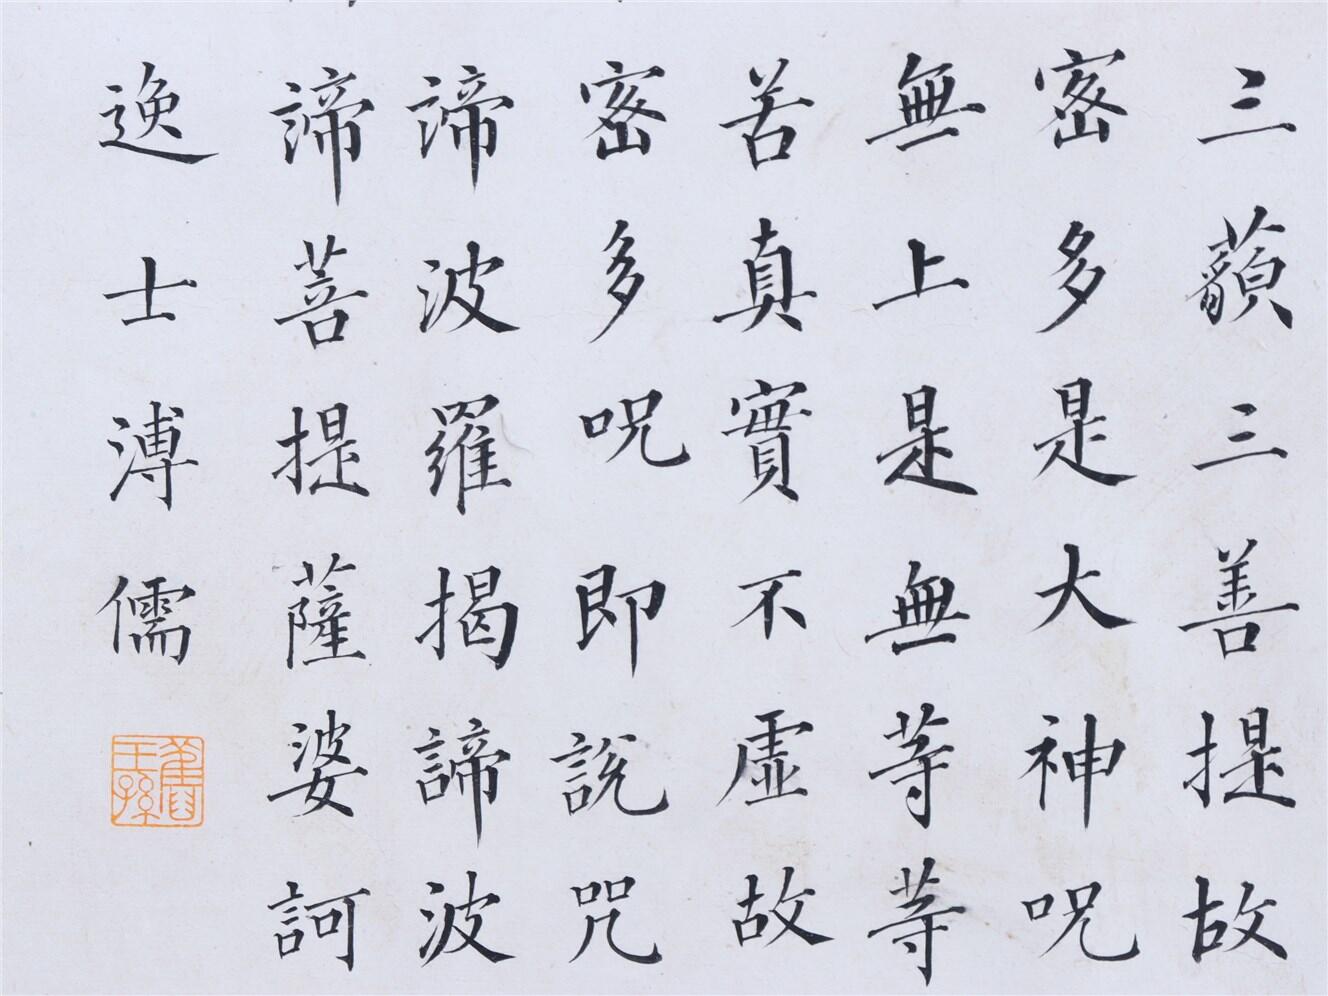 三藐三善提故
密多是大神呪
無上是無等等
苦真實不虛故
密多呪即說咒
諦波羅揭諦波
諦菩提薩婆訶
逸士溥儒
舊王孫